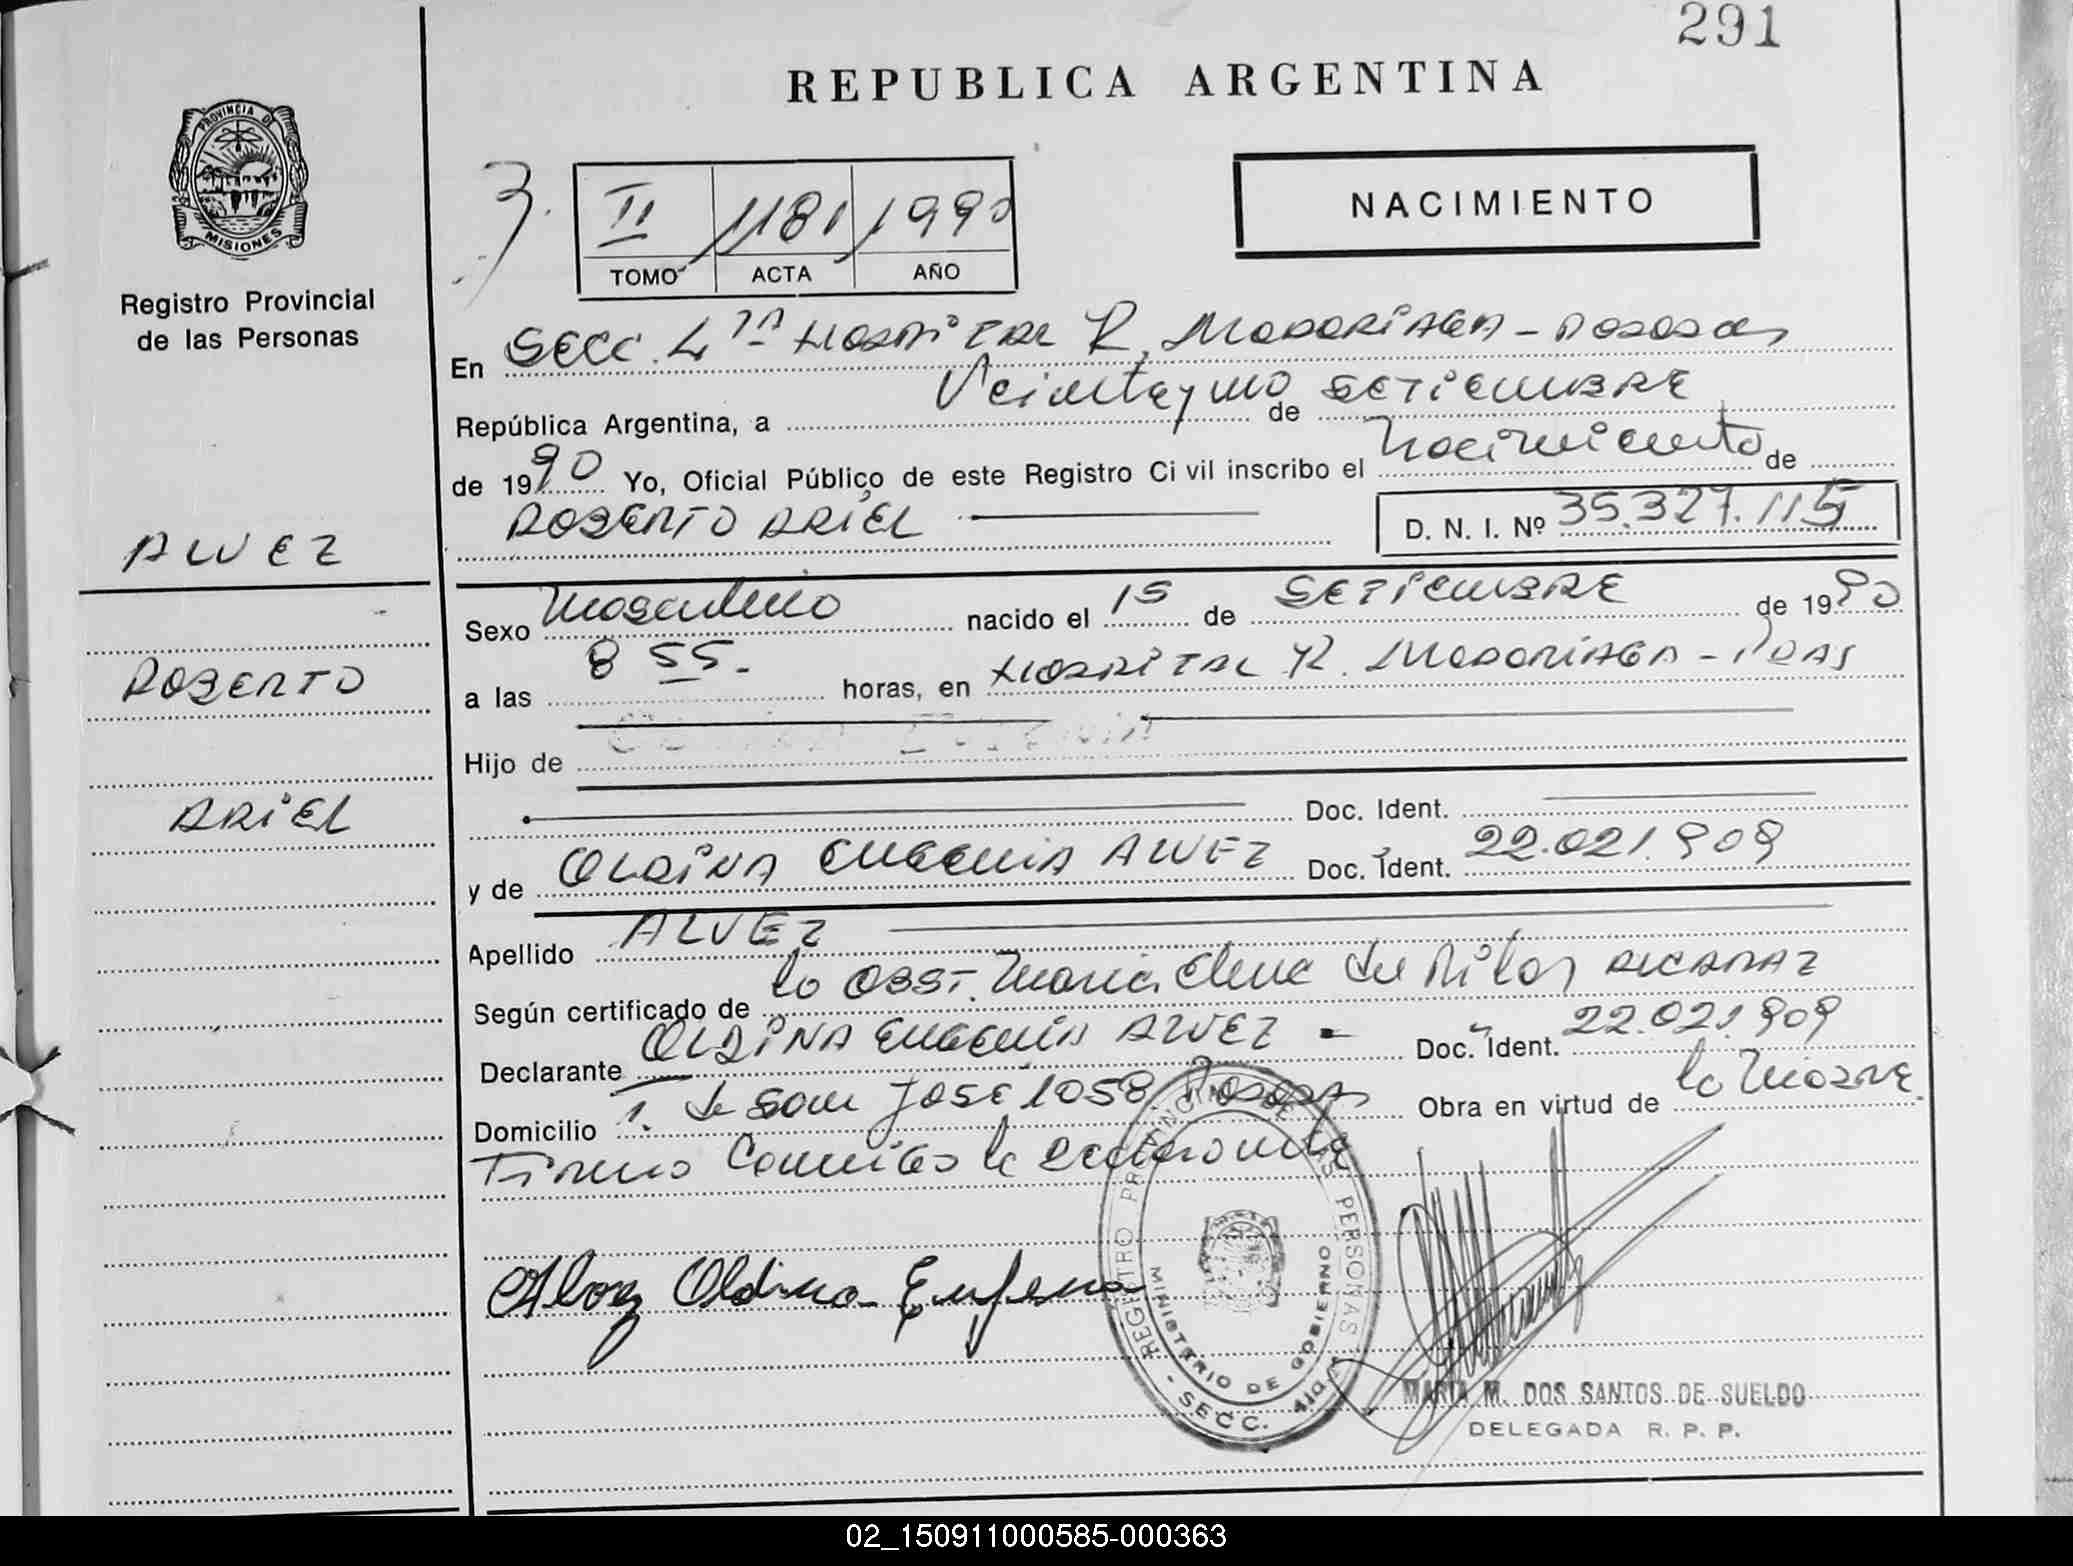 291
REPUBLICA ARGENTINA
PROVINCIA DE
MISIONES
Registro Provincial
de las Personas
II 1181 1990
TOMO ACTA AÑO
NACIMIENTO
En SECC. 4TA HOSPITAL R. MADARIAGA - POSADAS
República Argentina, a Veintayuno de SETIEMBRE
de 1990 Yo, Oficial Público de este Registro Civil inscribo el Nacimiento de
ROBERTO ARIEL D. N. I. Nº 35.327.115
ALVEZ
ROBERTO
ARIEL
Sexo Masculino nacido el 15 de SETIEMBRE de 1990
a las 8 55. horas, en HOSPITAL R. MADARIAGA - PDAS
Hijo de
Doc. Ident.
y de OLDINA EUGENIA ALVEZ Doc. Ident. 22.021.909
Apellido ALVEZ
Según certificado de la OBST. Maria Elena de ALCARAZ
Declarante OLDINA EUGENIA ALVEZ - Doc. Ident. 22.021.909
Domicilio T. de San JOSE 1058 Posadas Obra en virtud de la MADRE
Firma Conmigo la declarante
Alvez Oldina Eugenia
REGISTRO PROVINCIAL DE LAS PERSONAS
MINISTERIO DE GOBIERNO
- SECC. 4ta
MARIA M. DOS SANTOS DE SUELDO
DELEGADA R. P. P.
02_150911000585-000363